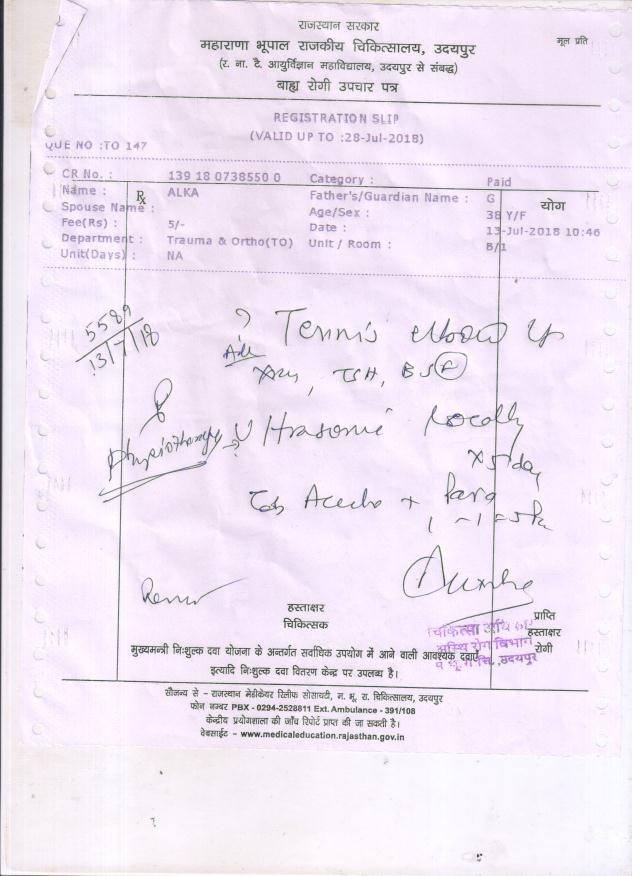 राजस्थान सरकार
महाराणा भूपाल राजकीय चिकित्सालय, उदयपुर
मूल प्रति
(र. ना. टै. आयुर्विज्ञान महाविद्यालय, उदयपुर से संबद्ध)
बाह्य रोगी उपचार पत्र
REGISTRATION SLIP
(VALID UP TO :28-Jul-2018)
QUE NO :TO 147
CR No. : 139 18 0738550 0 Category : Paid
Name : ALKA Father's/Guardian Name : G
Rx योग
Spouse Name : Age/Sex : 38 Y/F
Fee(Rs) : 5/- Date : 13-Jul-2018 10:46
Department : Trauma & Ortho(TO) Unit / Room : B/1
Unit(Days) : NA
5589
13/7/18
? Tennis elbow
Adv
Xray, TSH, BSF
Physiotherapy → Ultrasonic locally
x 5 day
Tab Aceclo + Para
हस्ताक्षर
चिकित्सक
प्राप्ति
हस्ताक्षर
रोगी
अस्थि रोग विभाग
उदयपुर
मुख्यमन्त्री निःशुल्क दवा योजना के अन्तर्गत सर्वाधिक उपयोग में आने वाली आवश्यक दवाएं
इत्यादि निःशुल्क दवा वितरण केन्द्र पर उपलब्ध है।
सौजन्य से - राजस्थान मेडीकेयर रिलीफ सोसायटी, म. भू. रा. चिकित्सालय, उदयपुर
फोन नम्बर PBX - 0294-2528811 Ext. Ambulance - 391/108
केन्द्रीय प्रयोगशाला की जाँच रिपोर्ट प्राप्त की जा सकती है।
वेबसाईट - www.medicaleducation.rajasthan.gov.in